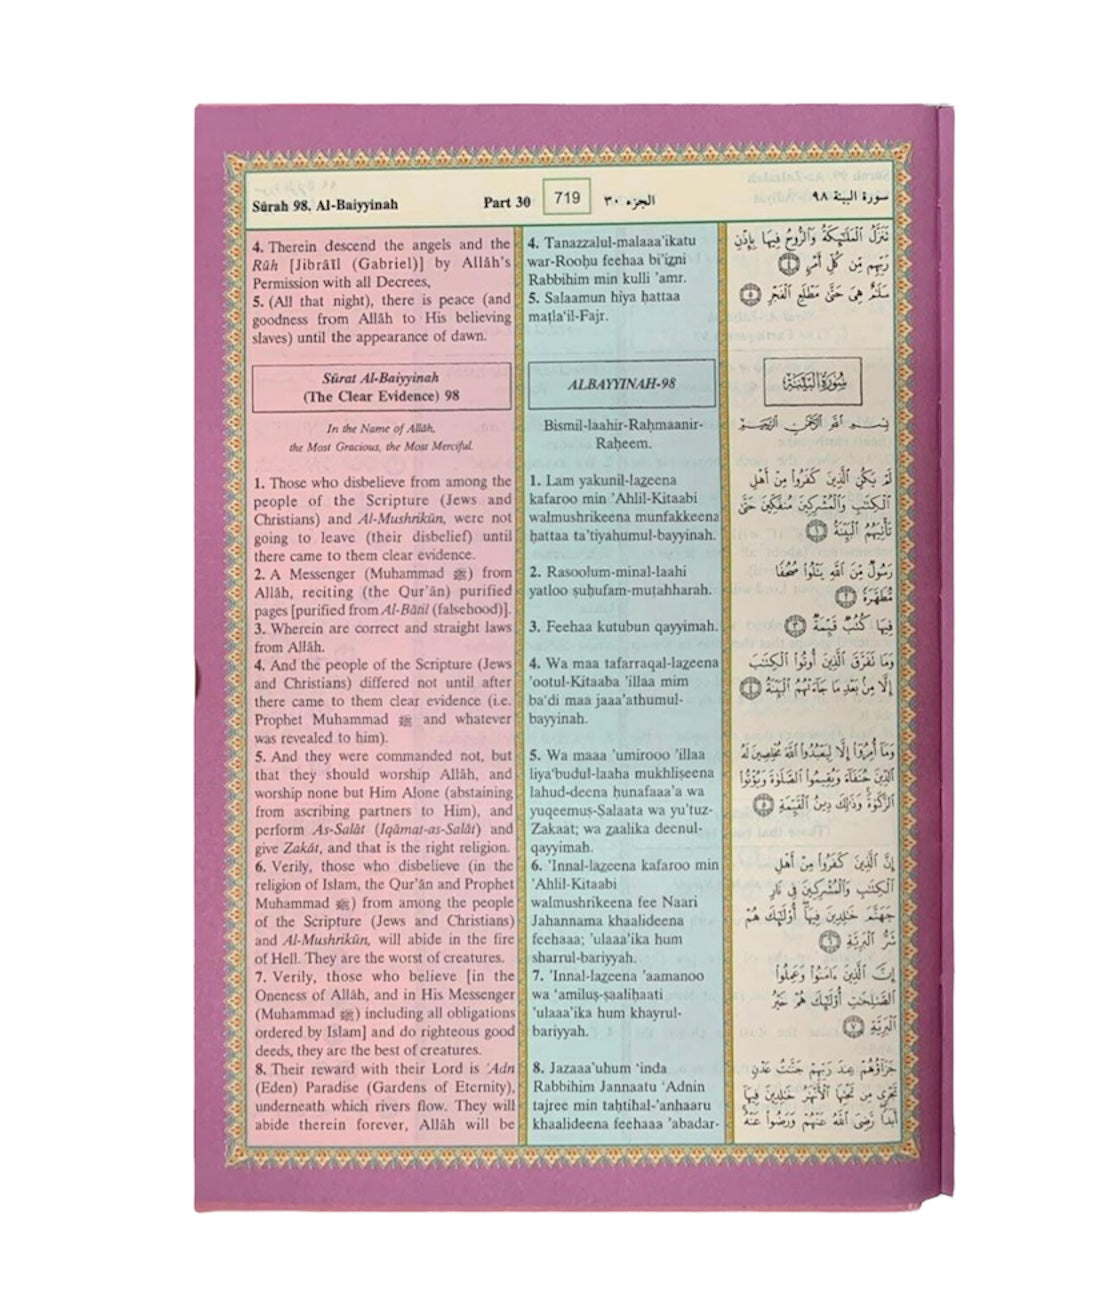 Sūrah 98. Al-Baiyyinah
Part 30
719
الجزء ٣٠
سورة البينة ٩٨
4. Therein descend the angels and the
Rūh [Jibrāīl (Gabriel)] by Allāh's
Permission with all Decrees,
5. (All that night), there is peace (and
goodness from Allāh to His believing
slaves) until the appearance of dawn.
Sūrat Al-Baiyyinah
(The Clear Evidence) 98
In the Name of Allāh,
the Most Gracious, the Most Merciful.
1. Those who disbelieve from among the
people of the Scripture (Jews and
Christians) and Al-Mushrikūn, were not
going to leave (their disbelief) until
there came to them clear evidence.
2. A Messenger (Muhammad ﷺ) from
Allāh, reciting (the Qur'ān) purified
pages [purified from Al-Bātil (falsehood)].
3. Wherein are correct and straight laws
from Allāh.
4. And the people of the Scripture (Jews
and Christians) differed not until after
there came to them clear evidence (i.e.
Prophet Muhammad ﷺ and whatever
was revealed to him).
5. And they were commanded not, but
that they should worship Allāh, and
worship none but Him Alone (abstaining
from ascribing partners to Him), and
perform As-Salāt (Iqāmat-as-Salāt) and
give Zakāt, and that is the right religion.
6. Verily, those who disbelieve (in the
religion of Islam, the Qur'ān and Prophet
Muhammad ﷺ) from among the people
of the Scripture (Jews and Christians)
and Al-Mushrikūn, will abide in the fire
of Hell. They are the worst of creatures.
7. Verily, those who believe [in the
Oneness of Allāh, and in His Messenger
(Muhammad ﷺ) including all obligations
ordered by Islam] and do righteous good
deeds, they are the best of creatures.
8. Their reward with their Lord is 'Adn
(Eden) Paradise (Gardens of Eternity),
underneath which rivers flow. They will
abide therein forever, Allāh will be
4. Tanazzalul-malaaa'ikatu
war-Rooḥu feehaa bi'iẕni
Rabbihim min kulli 'amr.
5. Salaamun hiya ḥattaa
maṭla'il-Fajr.
ALBAYYINAH-98
Bismil-laahir-Raḥmaanir-
Raḥeem.
1. Lam yakunil-laẕeena
kafaroo min 'Ahlil-Kitaabi
walmushrikeena munfakkeena
ḥattaa ta'tiyahumul-bayyinah.
2. Rasoolum-minal-laahi
yatloo ṣuḥufam-muṭahharah.
3. Feehaa kutubun qayyimah.
4. Wa maa tafarraqal-laẕeena
'ootul-Kitaaba 'illaa mim
ba'di maa jaaa'athumul-
bayyinah.
5. Wa maaa 'umirooo 'illaa
liya'budul-laaha mukhliṣeena
lahud-deena ḥunafaaa'a wa
yuqeemuṣ-Ṣalaata wa yu'tuz-
Zakaat; wa zaalika deenul-
qayyimah.
6. 'Innal-laẕeena kafaroo min
'Ahlil-Kitaabi
walmushrikeena fee Naari
Jahannama khaalideena
feehaaa; 'ulaaa'ika hum
sharrul-bariyyah.
7. 'Innal-laẕeena 'aamanoo
wa 'amiluṣ-ṣaaliḥaati
'ulaaa'ika hum khayrul-
bariyyah.
8. Jazaaa'uhum 'inda
Rabbihim Jannaatu 'Adnin
tajree min taḥtihal-'anhaaru
khaalideena feehaaa 'abadar-
تَنَزَّلُ الْمَلَٰٓئِكَةُ وَالرُّوحُ فِيهَا بِإِذْنِ
رَبِّهِم مِّن كُلِّ أَمْرٍ ٤
سَلَٰمٌ هِىَ حَتَّىٰ مَطْلَعِ الْفَجْرِ ٥
سُورَةُ الْبَيِّنَةِ
بِسْمِ اللَّهِ الرَّحْمَٰنِ الرَّحِيمِ
لَمْ يَكُنِ الَّذِينَ كَفَرُوا۟ مِنْ أَهْلِ
الْكِتَٰبِ وَالْمُشْرِكِينَ مُنفَكِّينَ حَتَّىٰ
تَأْتِيَهُمُ الْبَيِّنَةُ ١
رَسُولٌ مِّنَ اللَّهِ يَتْلُوا۟ صُحُفًا
مُّطَهَّرَةً ٢
فِيهَا كُتُبٌ قَيِّمَةٌ ٣
وَمَا تَفَرَّقَ الَّذِينَ أُوتُوا۟ الْكِتَٰبَ
إِلَّا مِنۢ بَعْدِ مَا جَآءَتْهُمُ الْبَيِّنَةُ ٤
وَمَآ أُمِرُوٓا۟ إِلَّا لِيَعْبُدُوا۟ اللَّهَ مُخْلِصِينَ لَهُ
الدِّينَ حُنَفَآءَ وَيُقِيمُوا۟ الصَّلَوٰةَ وَيُؤْتُوا۟
الزَّكَوٰةَ وَذَٰلِكَ دِينُ الْقَيِّمَةِ ٥
إِنَّ الَّذِينَ كَفَرُوا۟ مِنْ أَهْلِ
الْكِتَٰبِ وَالْمُشْرِكِينَ فِى نَارِ
جَهَنَّمَ خَٰلِدِينَ فِيهَآ أُو۟لَٰٓئِكَ هُمْ
شَرُّ الْبَرِيَّةِ ٦
إِنَّ الَّذِينَ ءَامَنُوا۟ وَعَمِلُوا۟
الصَّٰلِحَٰتِ أُو۟لَٰٓئِكَ هُمْ خَيْرُ
الْبَرِيَّةِ ٧
جَزَآؤُهُمْ عِندَ رَبِّهِمْ جَنَّٰتُ عَدْنٍ
تَجْرِى مِن تَحْتِهَا الْأَنْهَٰرُ خَٰلِدِينَ فِيهَآ
أَبَدًا رَّضِىَ اللَّهُ عَنْهُمْ وَرَضُوا۟ عَنْهُ